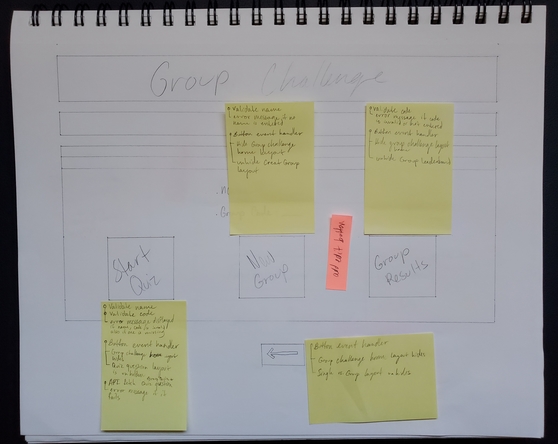 Group Challenge
Validate name
error message if no
name is entered
Button event handler
Hide Group challenge
home layout
unhide Creat Group
layout
Validate code
error message if code
is invalid or not entered
Button event handler
hide group challenge layout
home
unhide Group Leaderboard
Group
Start
Quiz
New
Group
Group
Results
Validate name
Validate code
error message displayed
if name, code is invalid
Button event handler
Group challenge home layout
hides
Quiz question layout
is unhidden
API
error message if it
fails
Button event handler
Group challenge home layout hides
Single or Group layout unhides